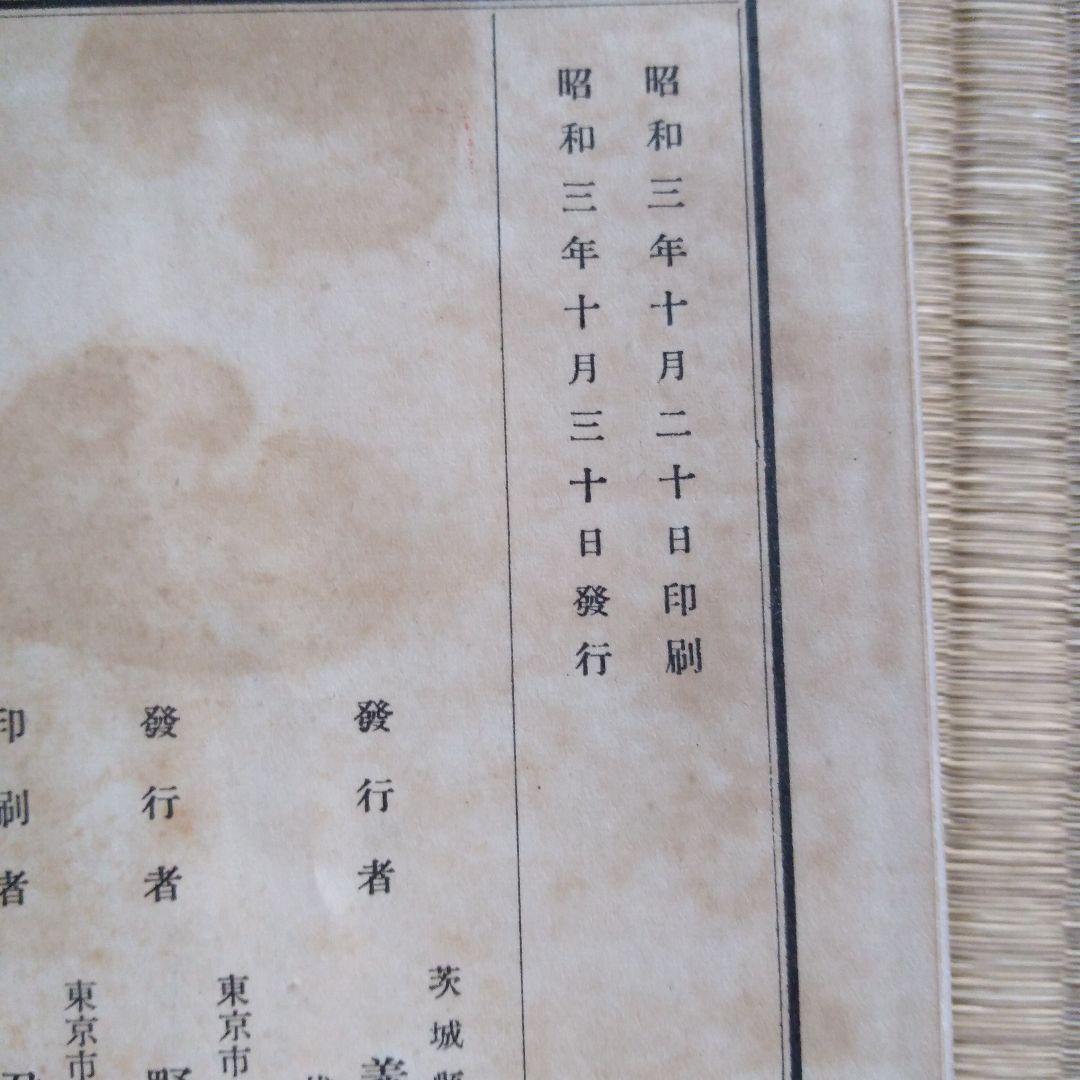 昭和三年十月二十日印刷
昭和三年十月三十日發行
茨城縣
發行者
東京市
發行者
東京市
印刷者